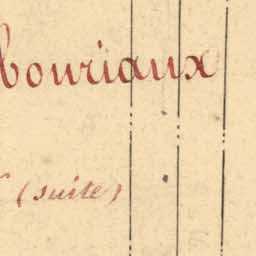 bouriaux
(suite)